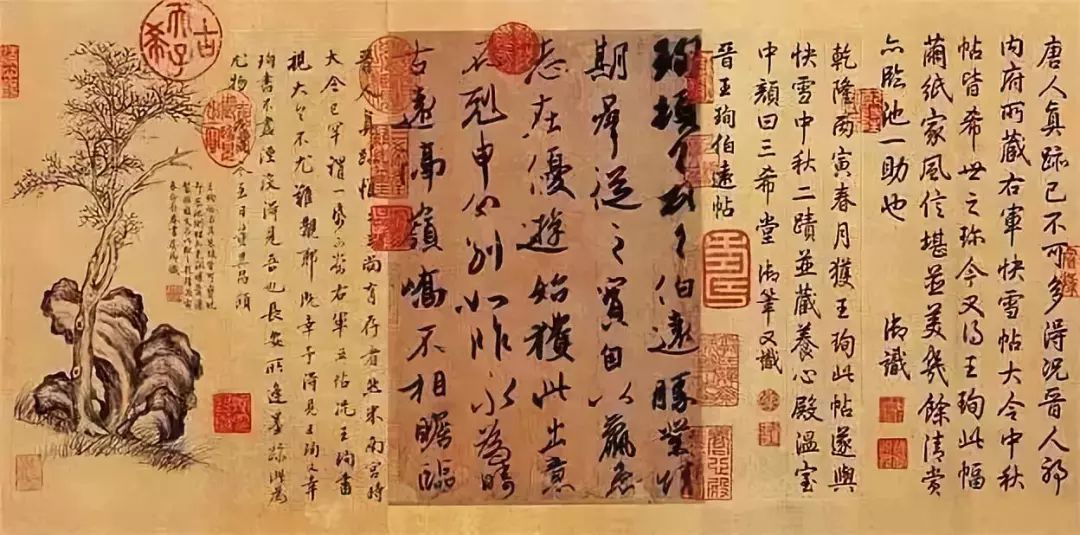 唐人真跡已不可多得況晉人耶
內府所藏右軍快雪帖大令中秋
帖皆希世之珍今又得王珣此幅
繭紙家風信堪並美幾餘清賞
亦臨池一助也 御識
乾隆丙寅春月獲王珣此帖遂與
快雪中秋二蹟並藏養心殿溫室
中顏曰三希堂 御筆又識
晉王珣伯遠帖
珣頓首頓首伯遠勝業情
期群從之寶自以羸患
志在優遊始獲此出意
不剋申分別如昨永為疇
古遠隔嶺嶠不相瞻臨
晉人真跡惟尚有存者然米南宮時
大令已罕謂一帋可當右軍五帖況王珣書
視大令不尤難覯耶既幸予得見王珣又幸
珣書不盡湮沒得見吾也長安所逢墨跡此為
尤物冬至日董其昌題
古希天子